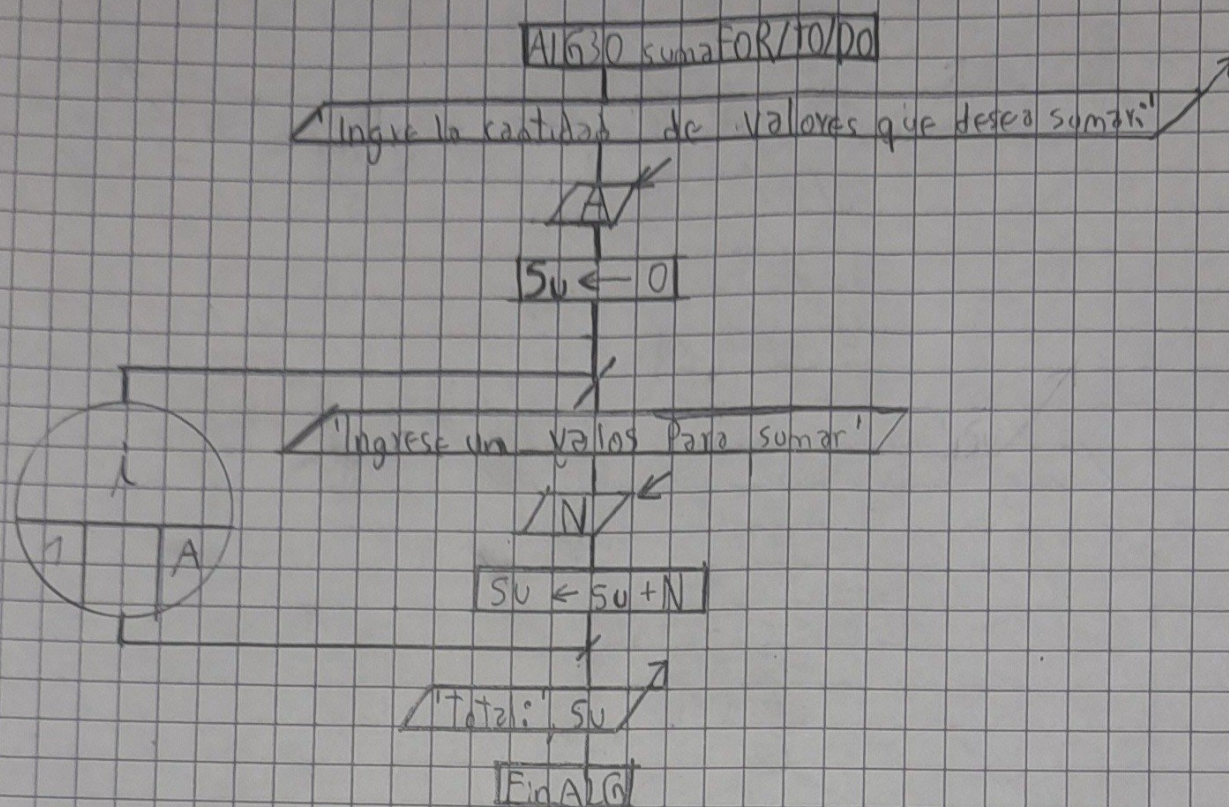 ALG30 sumaFOR/TO/DO
"Ingre la cantidad de valores que desea sumar:"
A
Su ← 0
i
1 A
'Ingrese un valos Para sumar'
N
SU ← SU + N
'total:', SU
Fin ALG